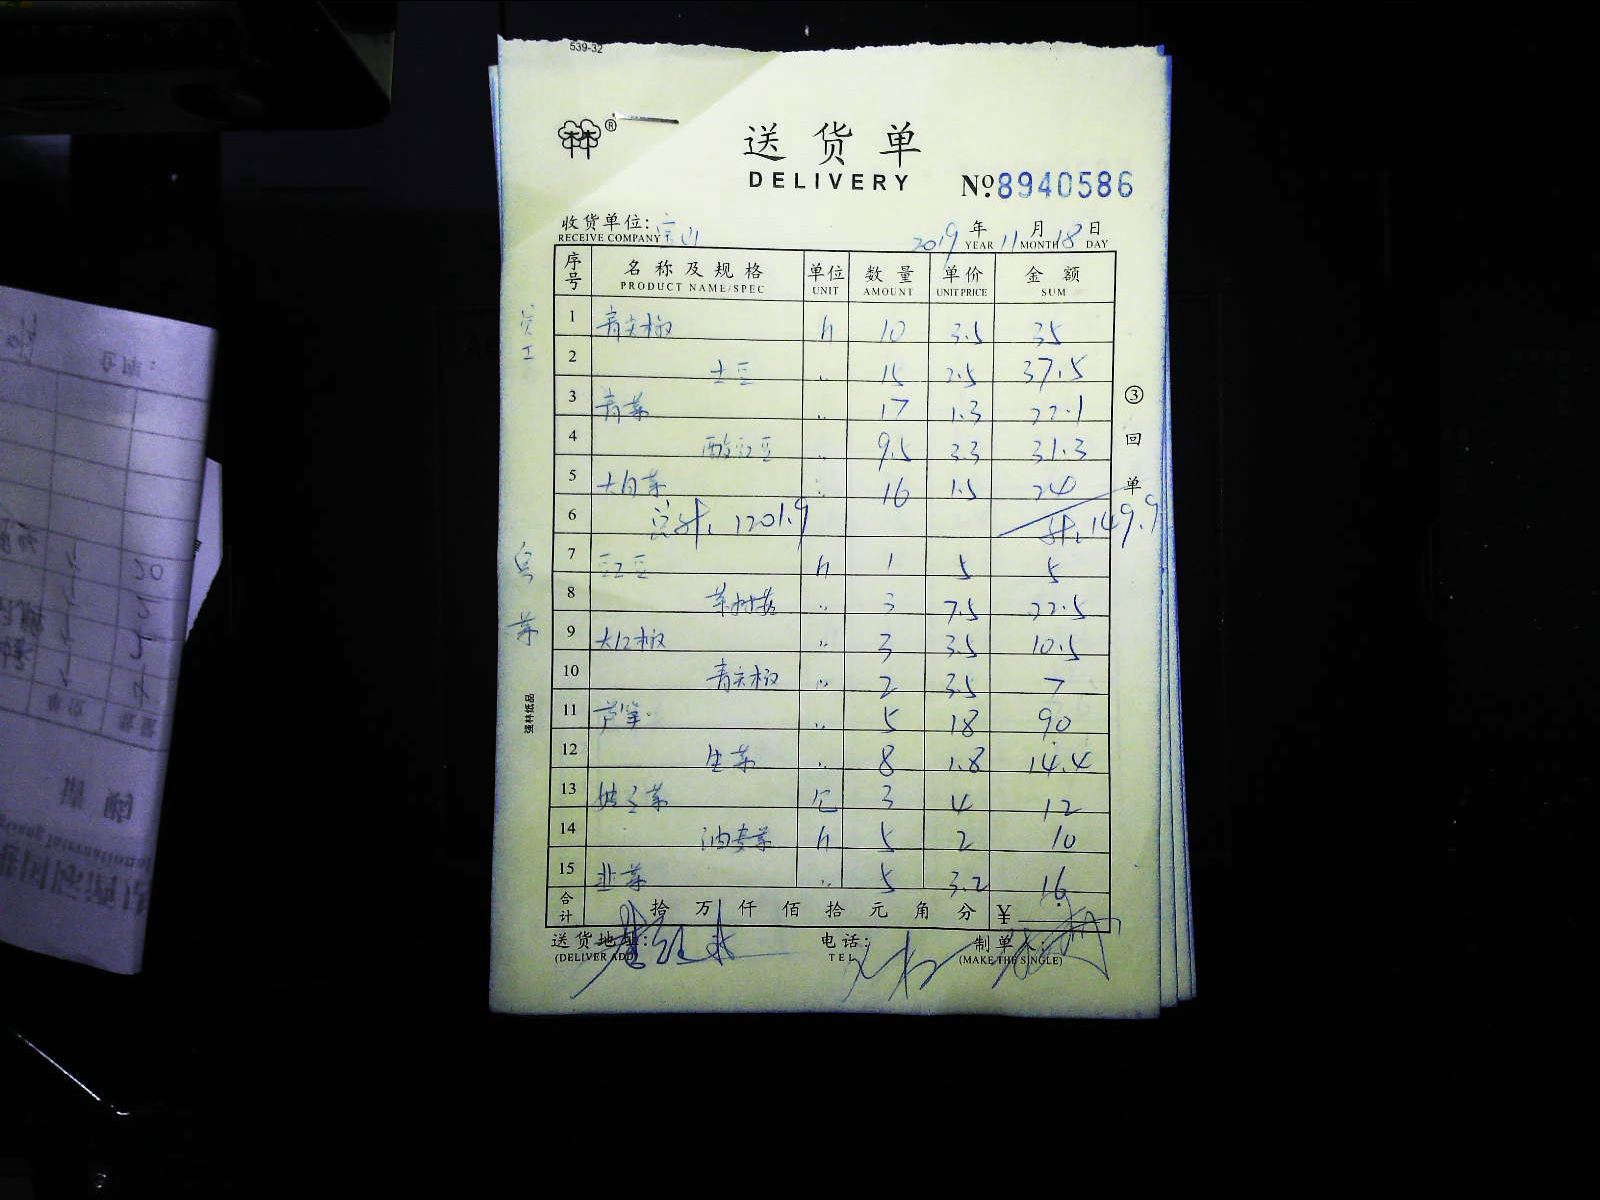 539-32
送货单
DELIVERY
№8940586
收货单位: 宝山 2019年11月18日
RECEIVE COMPANY YEAR MONTH DAY
序号 名称及规格 单位 数量 单价 金额
PRODUCT NAME/SPEC UNIT AMOUNT UNIT PRICE SUM
员工
1 青尖椒 斤 10 3.5 35
2 土豆 〃 15 2.5 37.5
3 青菜 〃 17 1.3 22.1
4 酸豇豆 〃 9.5 3.3 31.3
5 大白菜 〃 16 1.5 24
6 总计: 1201.9 计: 149.9
7 豇豆 斤 1 5 5
8 茶树菇 〃 3 7.5 22.5
9 大红椒 〃 3 3.5 10.5
10 青尖椒 〃 2 3.5 7
11 芦笋 〃 5 18 90
12 生菜 〃 8 1.8 14.4
13 娃子菜 个 3 4 12
14 油麦菜 斤 5 2 10
15 韭菜 〃 5 3.2 16
合计 拾万仟佰拾元角分 ¥
送货地址: 电话: 制单人:
(DELIVER ADD) TEL (MAKE THE SINGLE)
③回单
强林纸品